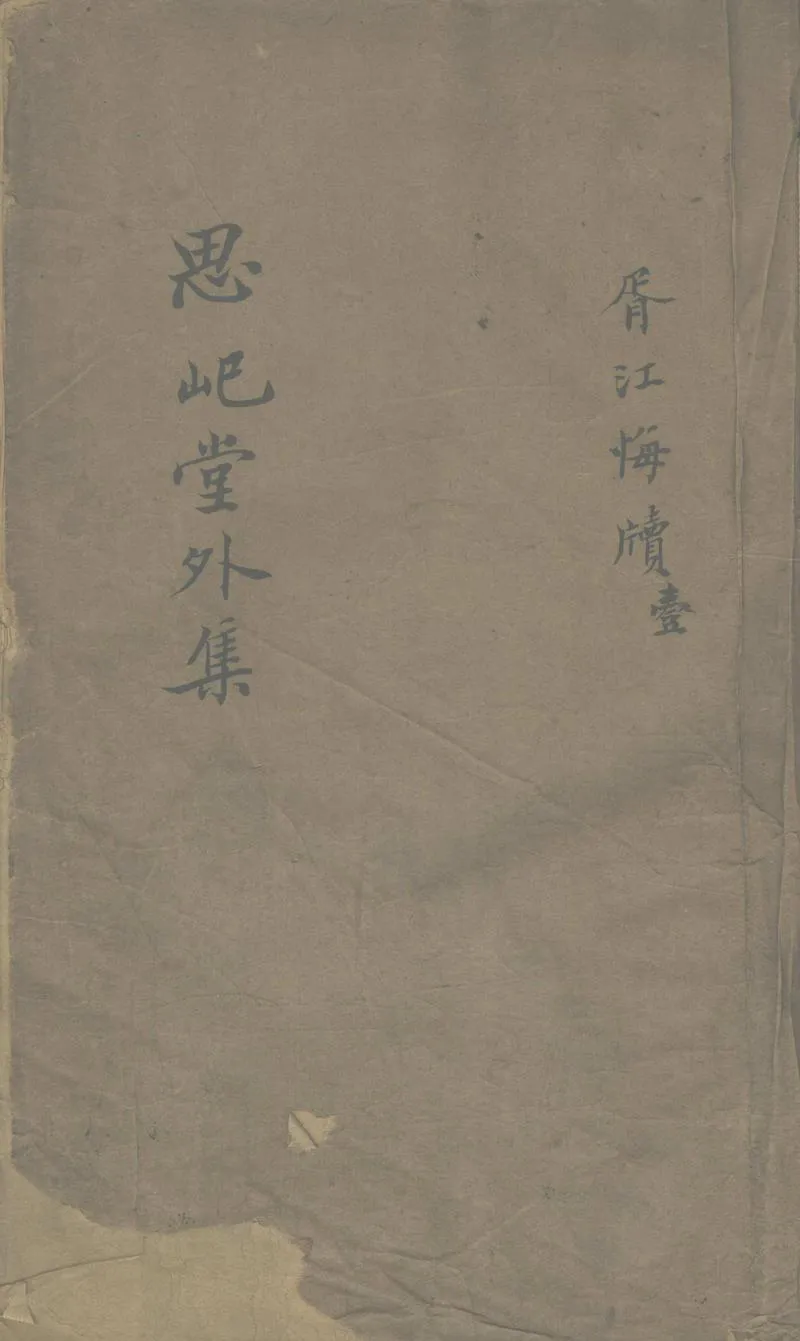 胥江悔牘壹
思屺堂外集